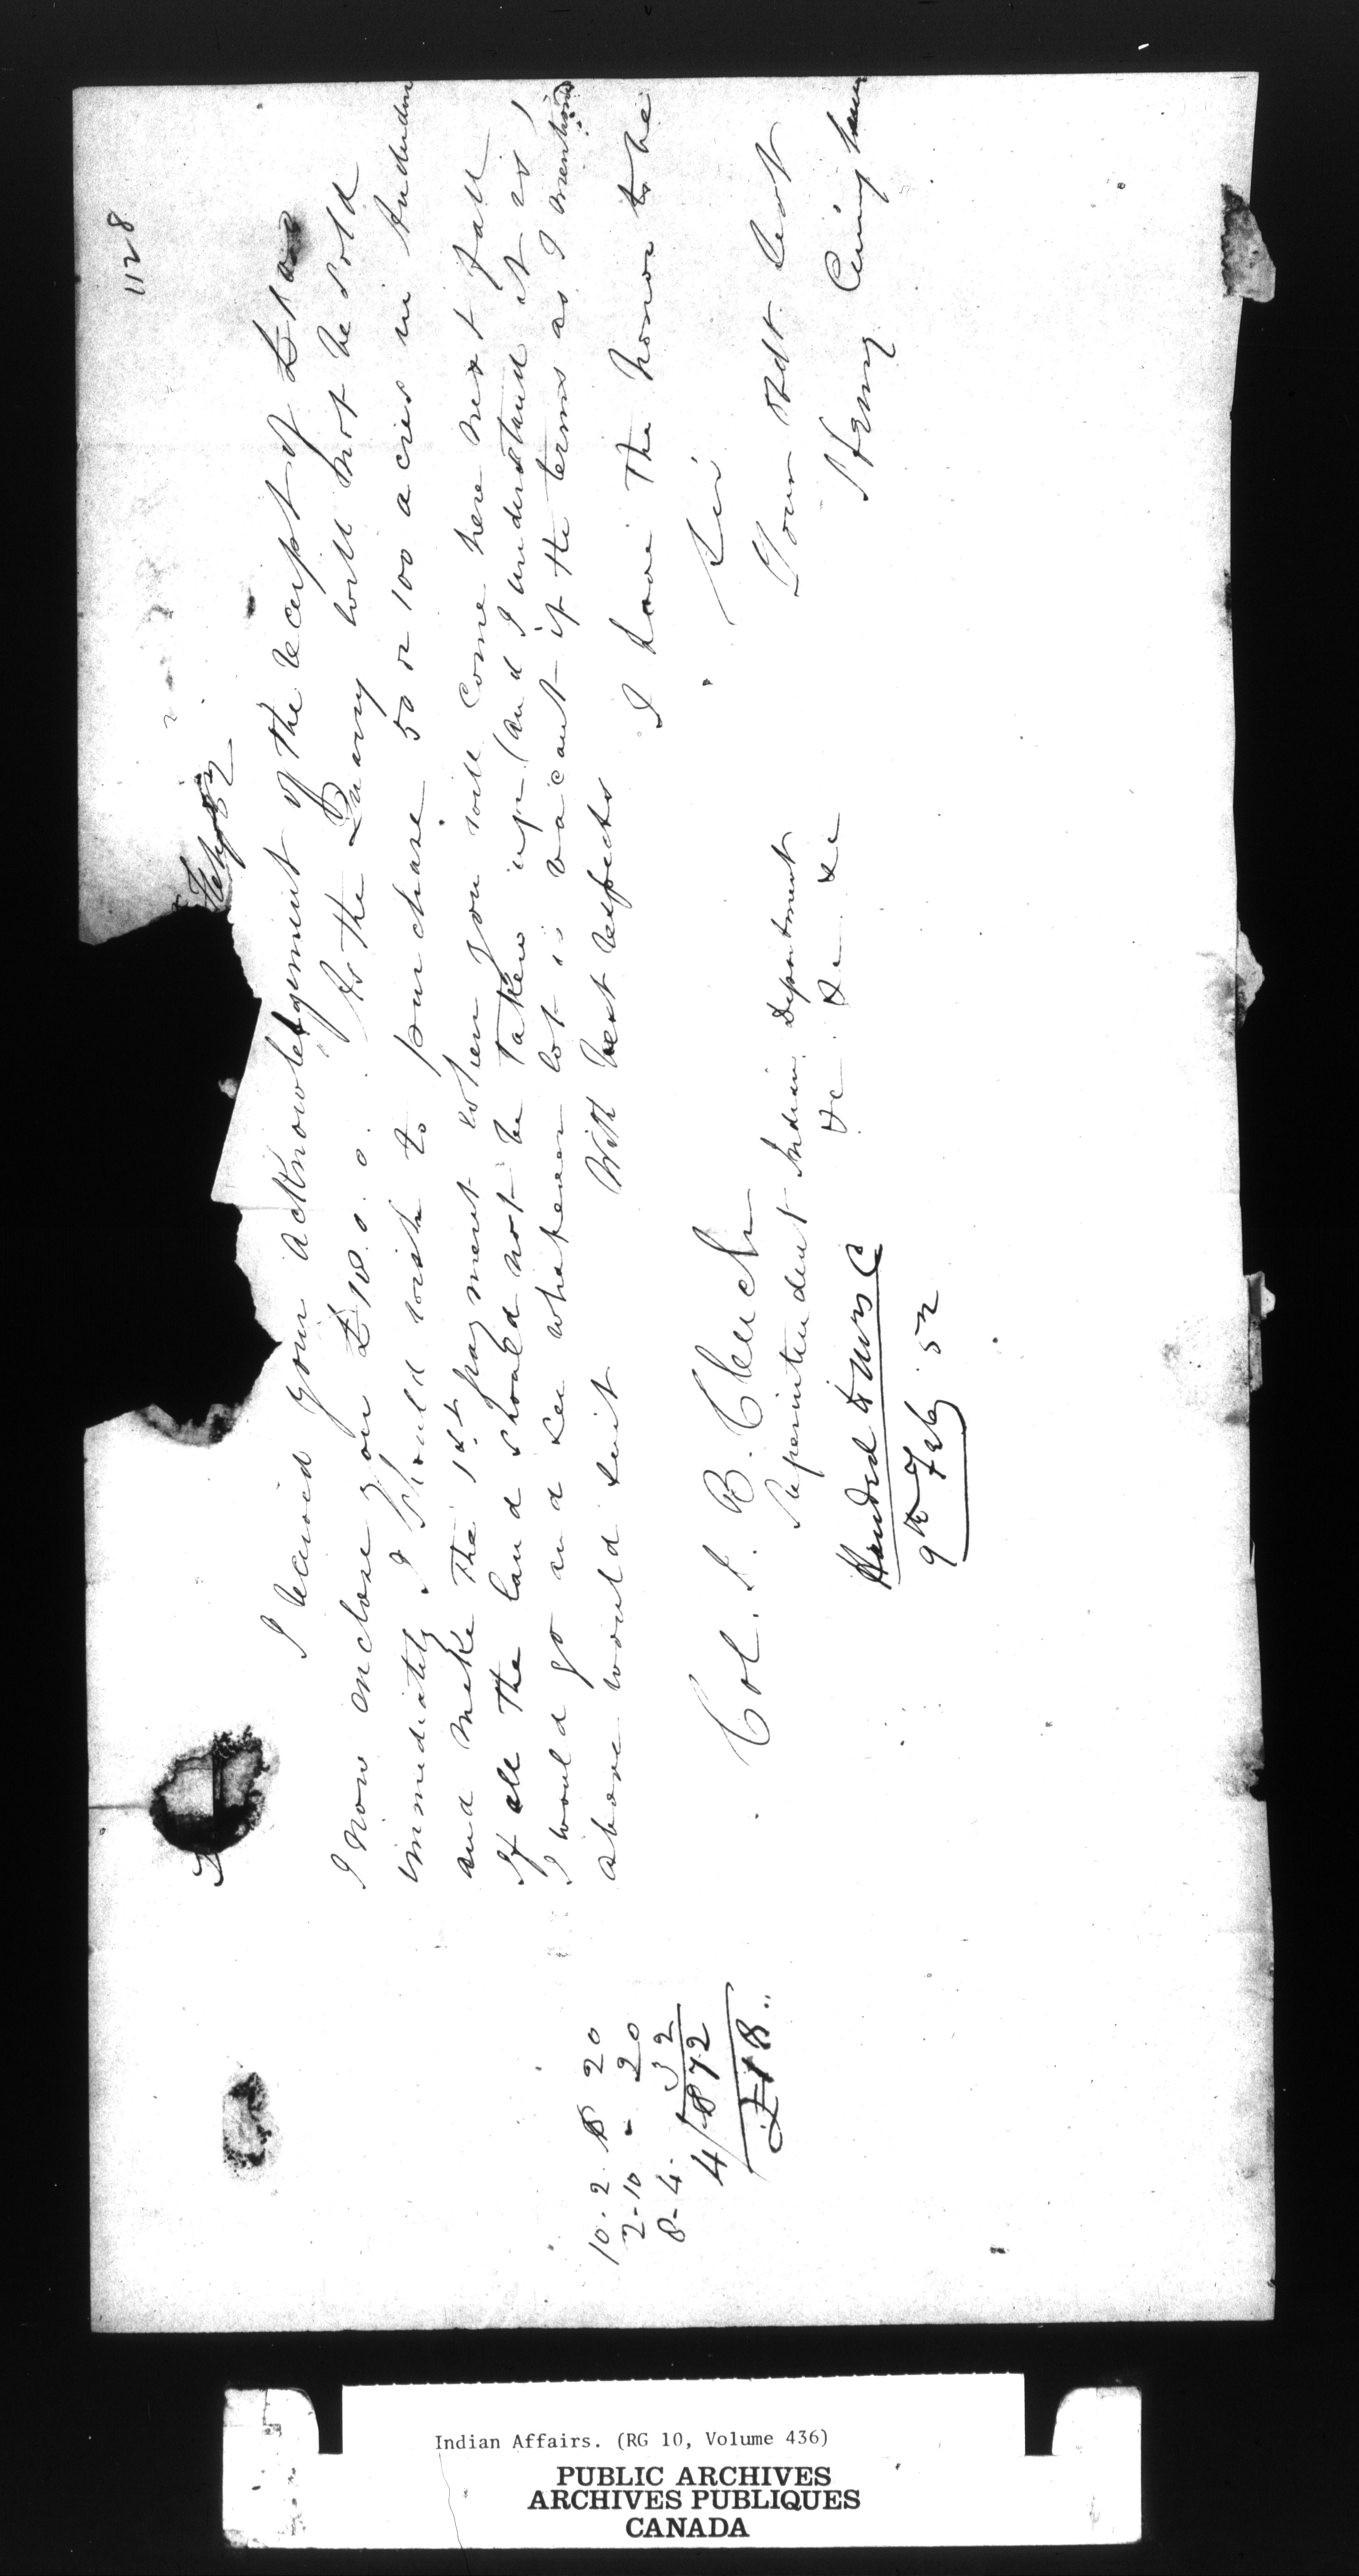 1128
Feby
I received your acknowledgement of the receipt of £
I now enclose you £18.0.0. As the Quarry will not be sold
immediately I should wish to purchase 50 or 100 acres in
and make the 1st payment when you will come here next fall
If all the land should not be taken up (and I understand it is)
I would go and see whatever lot is vacant if the terms as I mentiond
above would suit
With best respects
I have the honor to be
Sir
Your Obdt Sert
Henry
Col. J. B. Clench
Superintendent Indian Department
&c &c &c
Handed to Mrs C
9th Feby 52
10.2. $ 20
2-10 - 20
8-4- 32
4/872
£18..
Indian Affairs. (RG 10, Volume 436)
PUBLIC ARCHIVES
ARCHIVES PUBLIQUES
CANADA